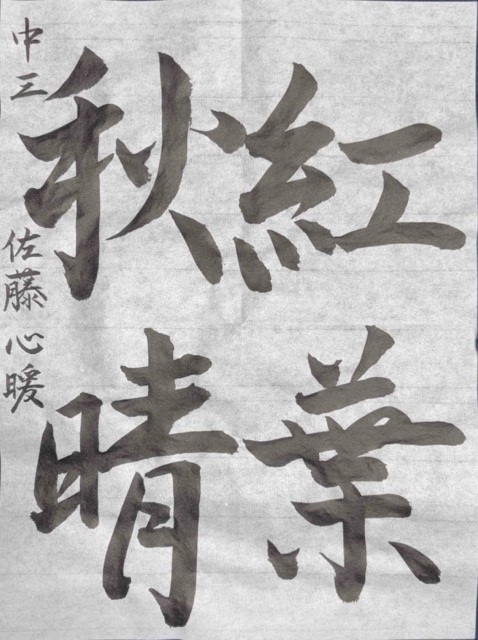 紅葉
秋晴
中三 佐藤心暖